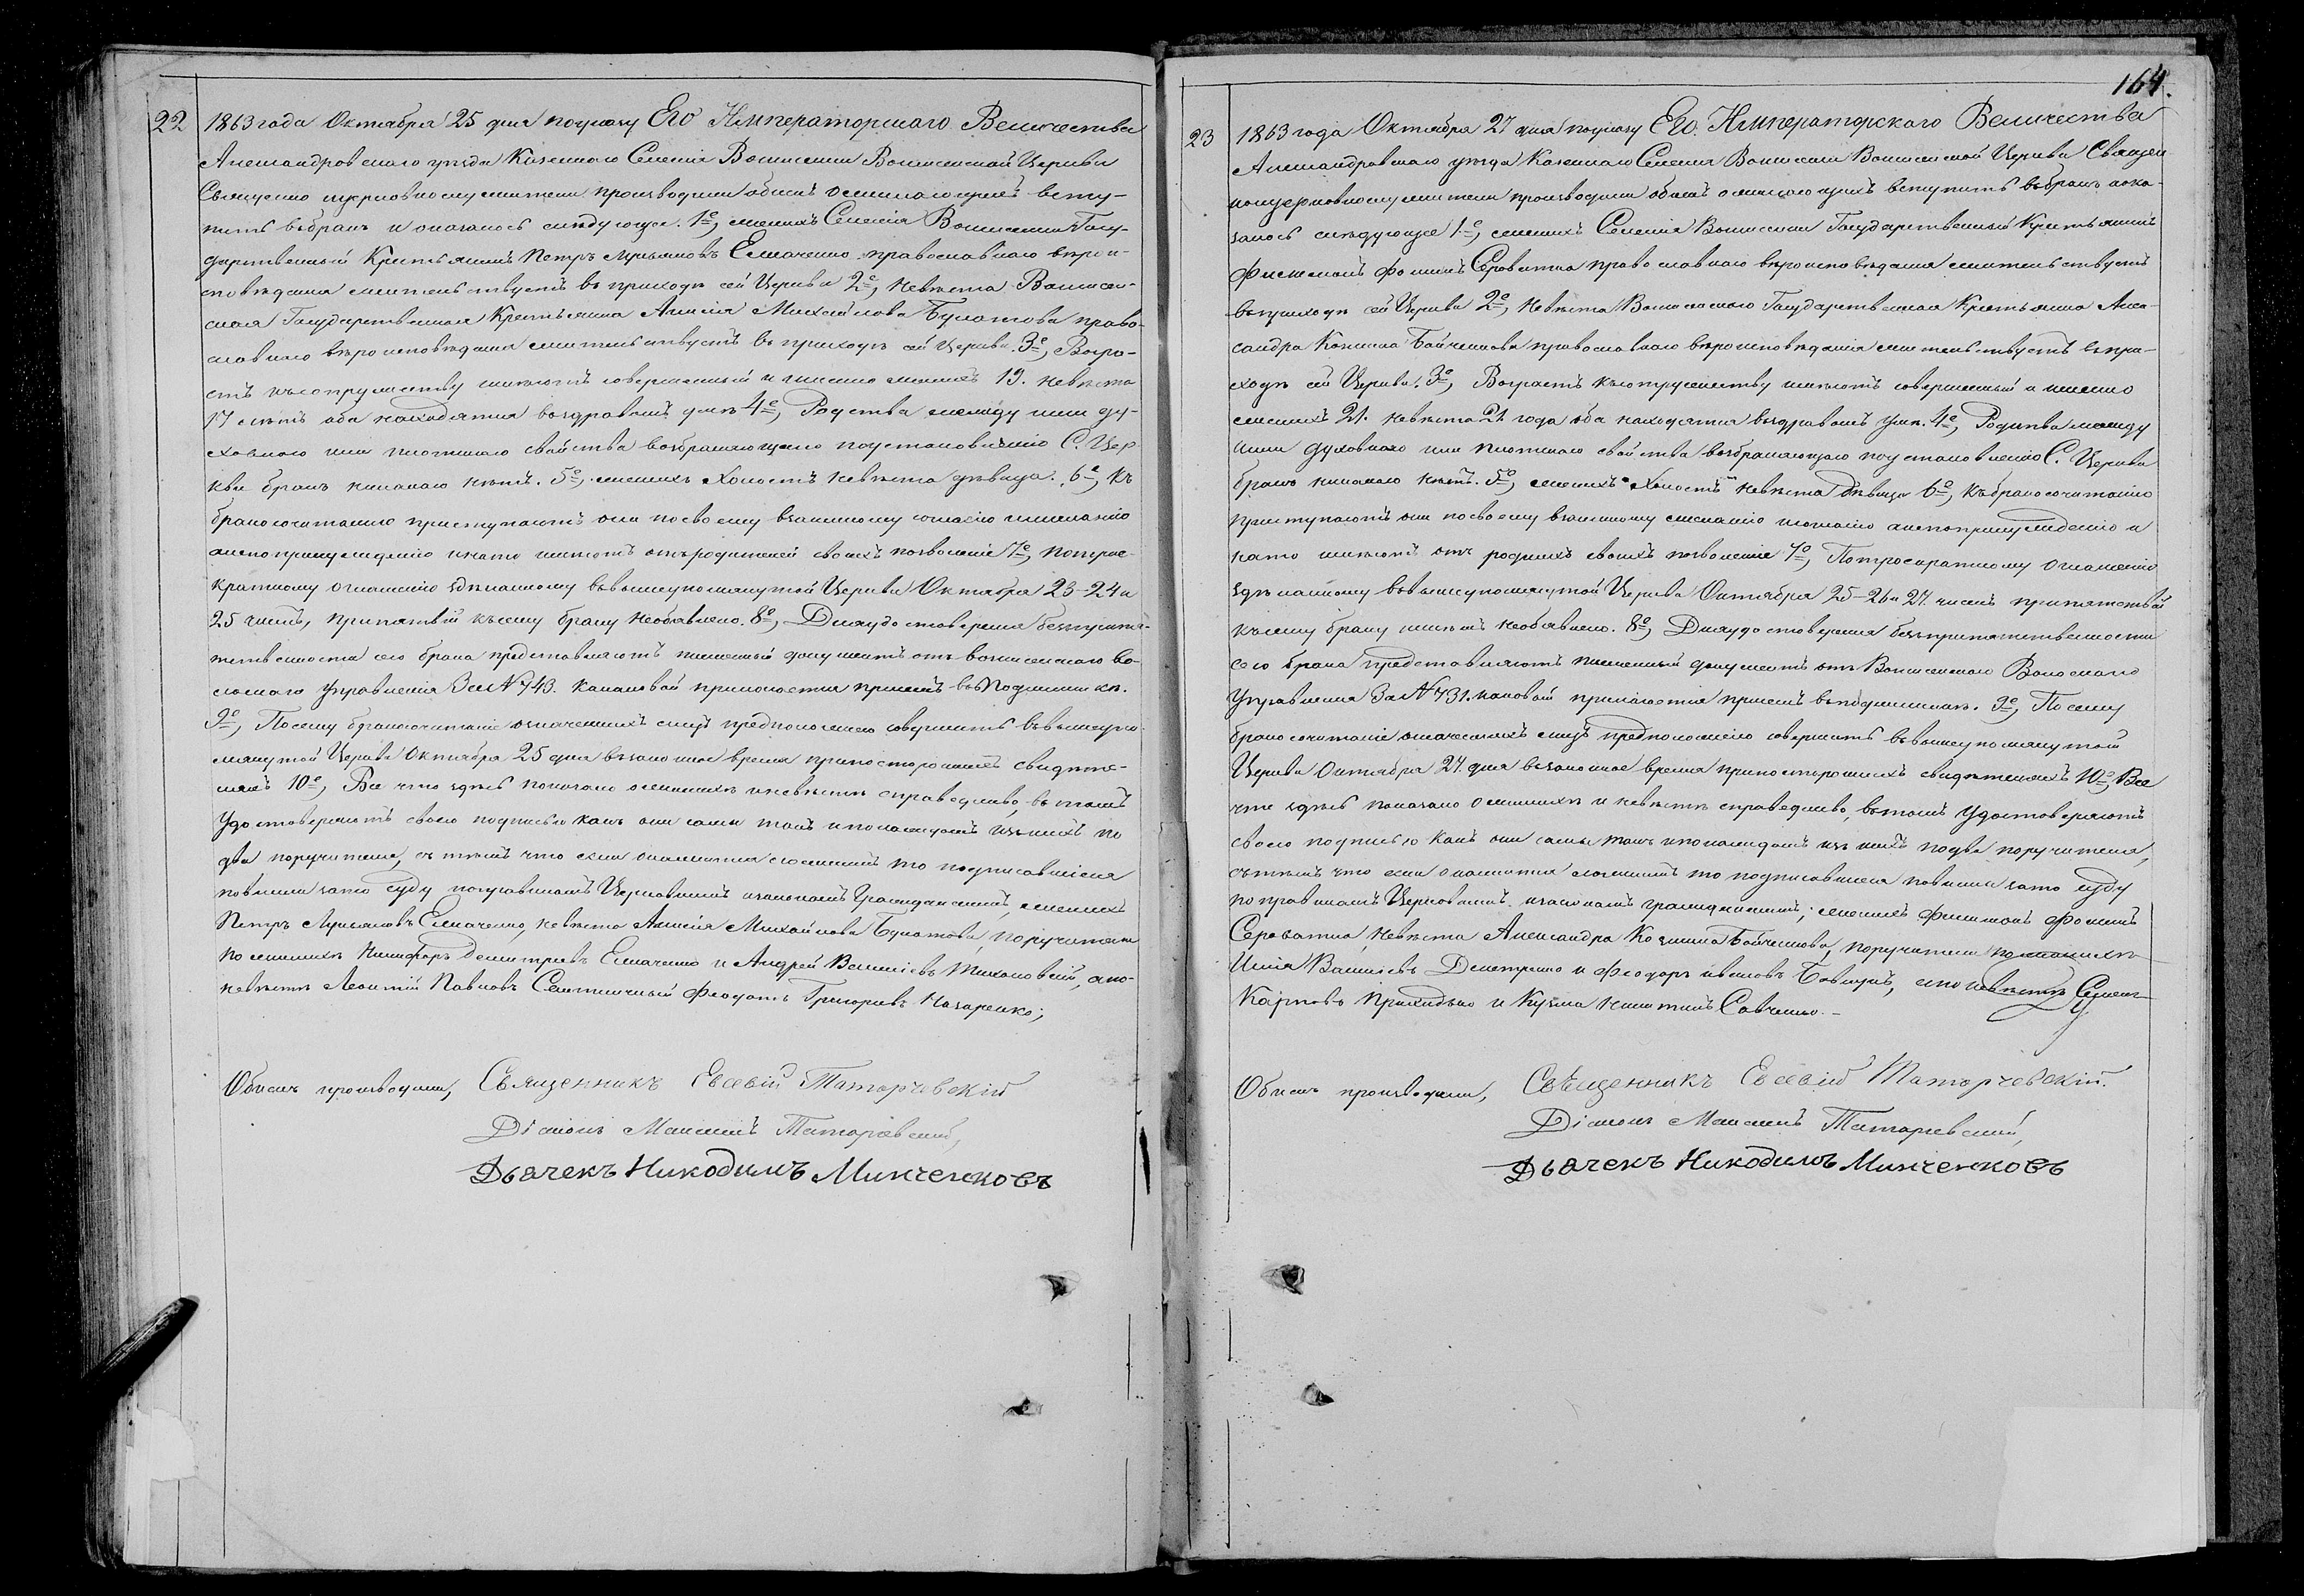 22
1863 года Октября 25 дня по указу Его Императорскаго Величества
Александровскаго уѣзда Казеннаго Селенія Вознесенки Вознесенской Церкви
Священно и церковно служители производили обыскъ о желающихъ всту-
пить въ бракъ и оказалось слѣдующее. 1е, женихъ Селенія Вознесенки Госу-
дарственный Крестьянинъ Петръ Лукьяновъ Емаченко православнаго вѣрои-
сповѣданія жительствуетъ въ приходѣ сей Церкви 2е, Невѣста Вознесен-
ская Государственная Крестьянка Михайлова Булатова право-
славнаго вѣроисповѣданія жительствуетъ въ приходѣ сей Церкви. 3е, Возра-
стъ къ супружеству имѣютъ совершенный и именно женихъ 19. невѣста
17 лѣтъ оба находятся въ здравомъ умѣ 4е, Родства между ими ду-
ховнаго или плотнаго свойства возбраняющаго по установленію С. Цер-
кви бракъ никакого нѣтъ. 5е, женихъ Холостъ невѣста дѣвица. 6е, Къ
бракосочитанію приступаютъ они по своему взаимному согласію и желанію
а не по принужденію и на то имѣютъ отъ родителей своихъ позволеніе 7е, По трое-
кратному оглашенію здѣланному въ вышеупомянутой Церкви Октября 23-24 и
25 числъ, препятствій къ сему браку не объявлено. 8е, Для удостоверенія безпрепят-
ственности сего брака представляютъ письменный документъ отъ Вознесенскаго Во-
лостнаго Управленія За № 743. каковой прилогается при семъ въ Подлинникѣ.
9е, По сему бракосочитаніе означенныхъ лицъ предположено совершить въ вышеупо-
мянутой Церкви Октября 25 дня въ законное время при постороннихъ свидѣте-
ляхъ 10е, Все что здѣсь показано о женихѣ и невѣстѣ справедливо, въ томъ
Удостоверяютъ своею подписью какъ они сами такъ и по каждомъ изъ нихъ по
два поручителя, съ тѣмъ что если окажется ложнымъ то подписавшіеся
повинны за то суду по правиламъ Церковнымъ и законамъ Гражданскимъ, женихъ
Петръ Лукьяновъ Емаченко, невѣста Михайлова Булатова, поручители
по женихѣ Никифоръ Демитріевъ Емаченко и Андрей Василіевъ Тихановскій, а по
невѣстѣ Леонтій Павловъ Феодотъ Григоріевъ Назаренко;
Обыскъ производили, Священникъ Евсевій Таторчевскій
Діаконъ Максимъ Таторчевскій,
Дьячекъ Никодимъ Минченковъ
164.
23
1863 года Октября 27 дня по указу Его Императорскаго Величества
Александровскаго уѣзда Казеннаго Селенія Вознесенки Вознесенской Церкви Священ-
ноцерковнослужители производили обыскъ о желающихъ вступить въ бракъ и ока-
залось слѣдующее 1е, женихъ Селенія Вознесенки Государственный Крестьянинъ
Филимонъ Фоминъ Сероватка православнаго вѣроисповѣданія жительствуетъ
въ приходѣ сей Церкви 2е, Невѣста Вознесенская Государственная Крестьянка Алек-
сандра Козмина Бойченкова православнаго вѣроисповѣданія жительствуетъ въ при-
ходѣ сей Церкви. 3е, Возрастъ къ супружеству имѣютъ совершенный и именно
женихъ 21. невѣста 21 года оба находятся въ здравомъ умѣ. 4е, Родства между
ими духовнаго или плотнаго свойства возбраняющаго по установленію С. Церкви
бракъ никакого нѣтъ. 5е, женихъ Холостъ невѣста дѣвица 6е, Къ бракосочитанію
приступаютъ они по своему взаимному желанію и согласію а не по принужденію и
на то имѣютъ отъ родныхъ своихъ позволеніе 7е, По троекратному оглашенію
здѣланному въ вышеупомянутой Церкви Октября 25-26 и 27. числъ препятствій
къ сему браку никѣмъ не объявлено. 8е, Для удостоверенія безпрепятственности
сего брака представляютъ письменный документъ отъ Вознесенскаго Волоснаго
Управленія За № 731. каковой прилагается при семъ въ подлинникѣ. 9е, По сему
бракосочитаніе означенныхъ лицъ предположено совершить въ вышеупомянутой
Церкви Октября 27. дня въ законное время при постороннихъ свидѣтеляхъ 10е, Все
что здѣсь показано о женихѣ и невѣстѣ справедливо, въ томъ Удостоверяютъ
своею подписью какъ они сами такъ и по каждомъ изъ нихъ по два поручителя,
съ тѣмъ что если окажется ложнымъ то подписавшіеся повинны за то суду
по правиламъ Церковнымъ и законамъ гражданскимъ; женихъ Филимонъ Фоминъ
Сероватка, Невѣста Александра Козмина Бойченкова, поручители по женихѣ
Илія Василіевъ Деметренко и Феодоръ Ивановъ Бовкунъ, а по невѣстѣ Семенъ
Карповъ Приходько и Кузма Никитинъ Савченко.
Обыскъ производили, Священникъ Евсевій Таторчевскій.
Діаконъ Максимъ Таторчевскій,
Дьячекъ Никодимъ Минченковъ